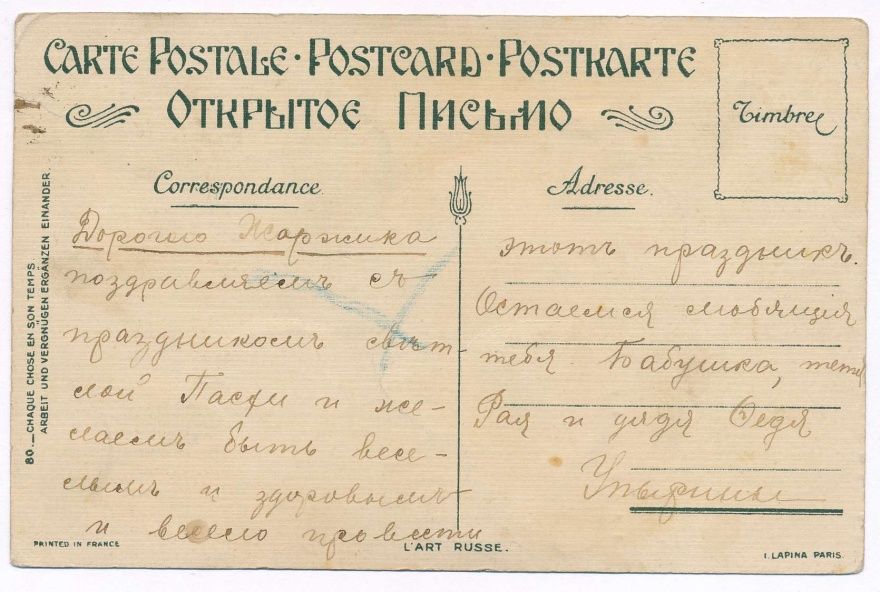 CARTE POSTALE · POSTCARD · POSTKARTE
ОТКРЫТОЕ ПИСЬМО
Timbre
Correspondance
Adresse.
80.—CHAQUE CHOSE EN SON TEMPS
ARBEIT UND VERGNÜGEN ERGÄNZEN EINANDER.
Дорогого Жоржика
поздравляемъ съ
праздникомъ свѣт-
лой Пасхи и же-
лаемъ быть весе-
лымъ и здоровымъ
и весело провести
этотъ праздникъ.
Остаемся любящія
тебя Бабушка, тетя
Рая и дядя Федя
PRINTED IN FRANCE
L'ART RUSSE.
I. LAPINA PARIS.